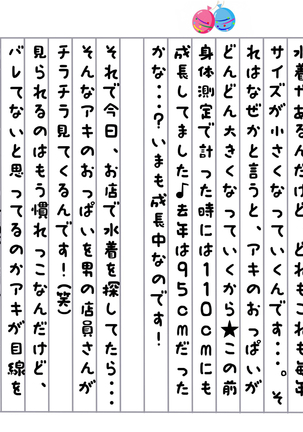 水着があるんだけど、どれもこれも毎年
サイズが小さくなっていくんです・・・。そ
れはなぜかと言うと、アキのおっぱいが
どんどん大きくなっていくから★この前
身体測定で計った時には110cmにも
成長してました♪去年は95cmだった
かな・・・?いまも成長中なのです!
それで今日、お店で水着を探してたら・・・
そんなアキのおっぱいを男の店員さんが
チラチラ見てくるんです!(笑)
見られるのはもう慣れっこなんだけど、
バレてないと思ってるのかアキが目線を